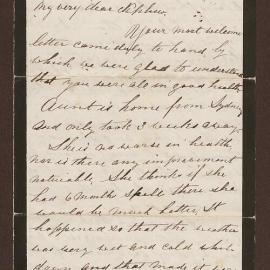 My very dear Nephew
Your most welcome
letter came duly to hand by
which we were glad to understand
that you were also in good health
Aunt is home from Sydney
and only took 3 weeks away.
She is no worse in health
nor is there any improvement
noticable. She thinks if she
had 6 months spell there she
would be much better. It
happened so that the weather
was very wet and cold while
down and that made it